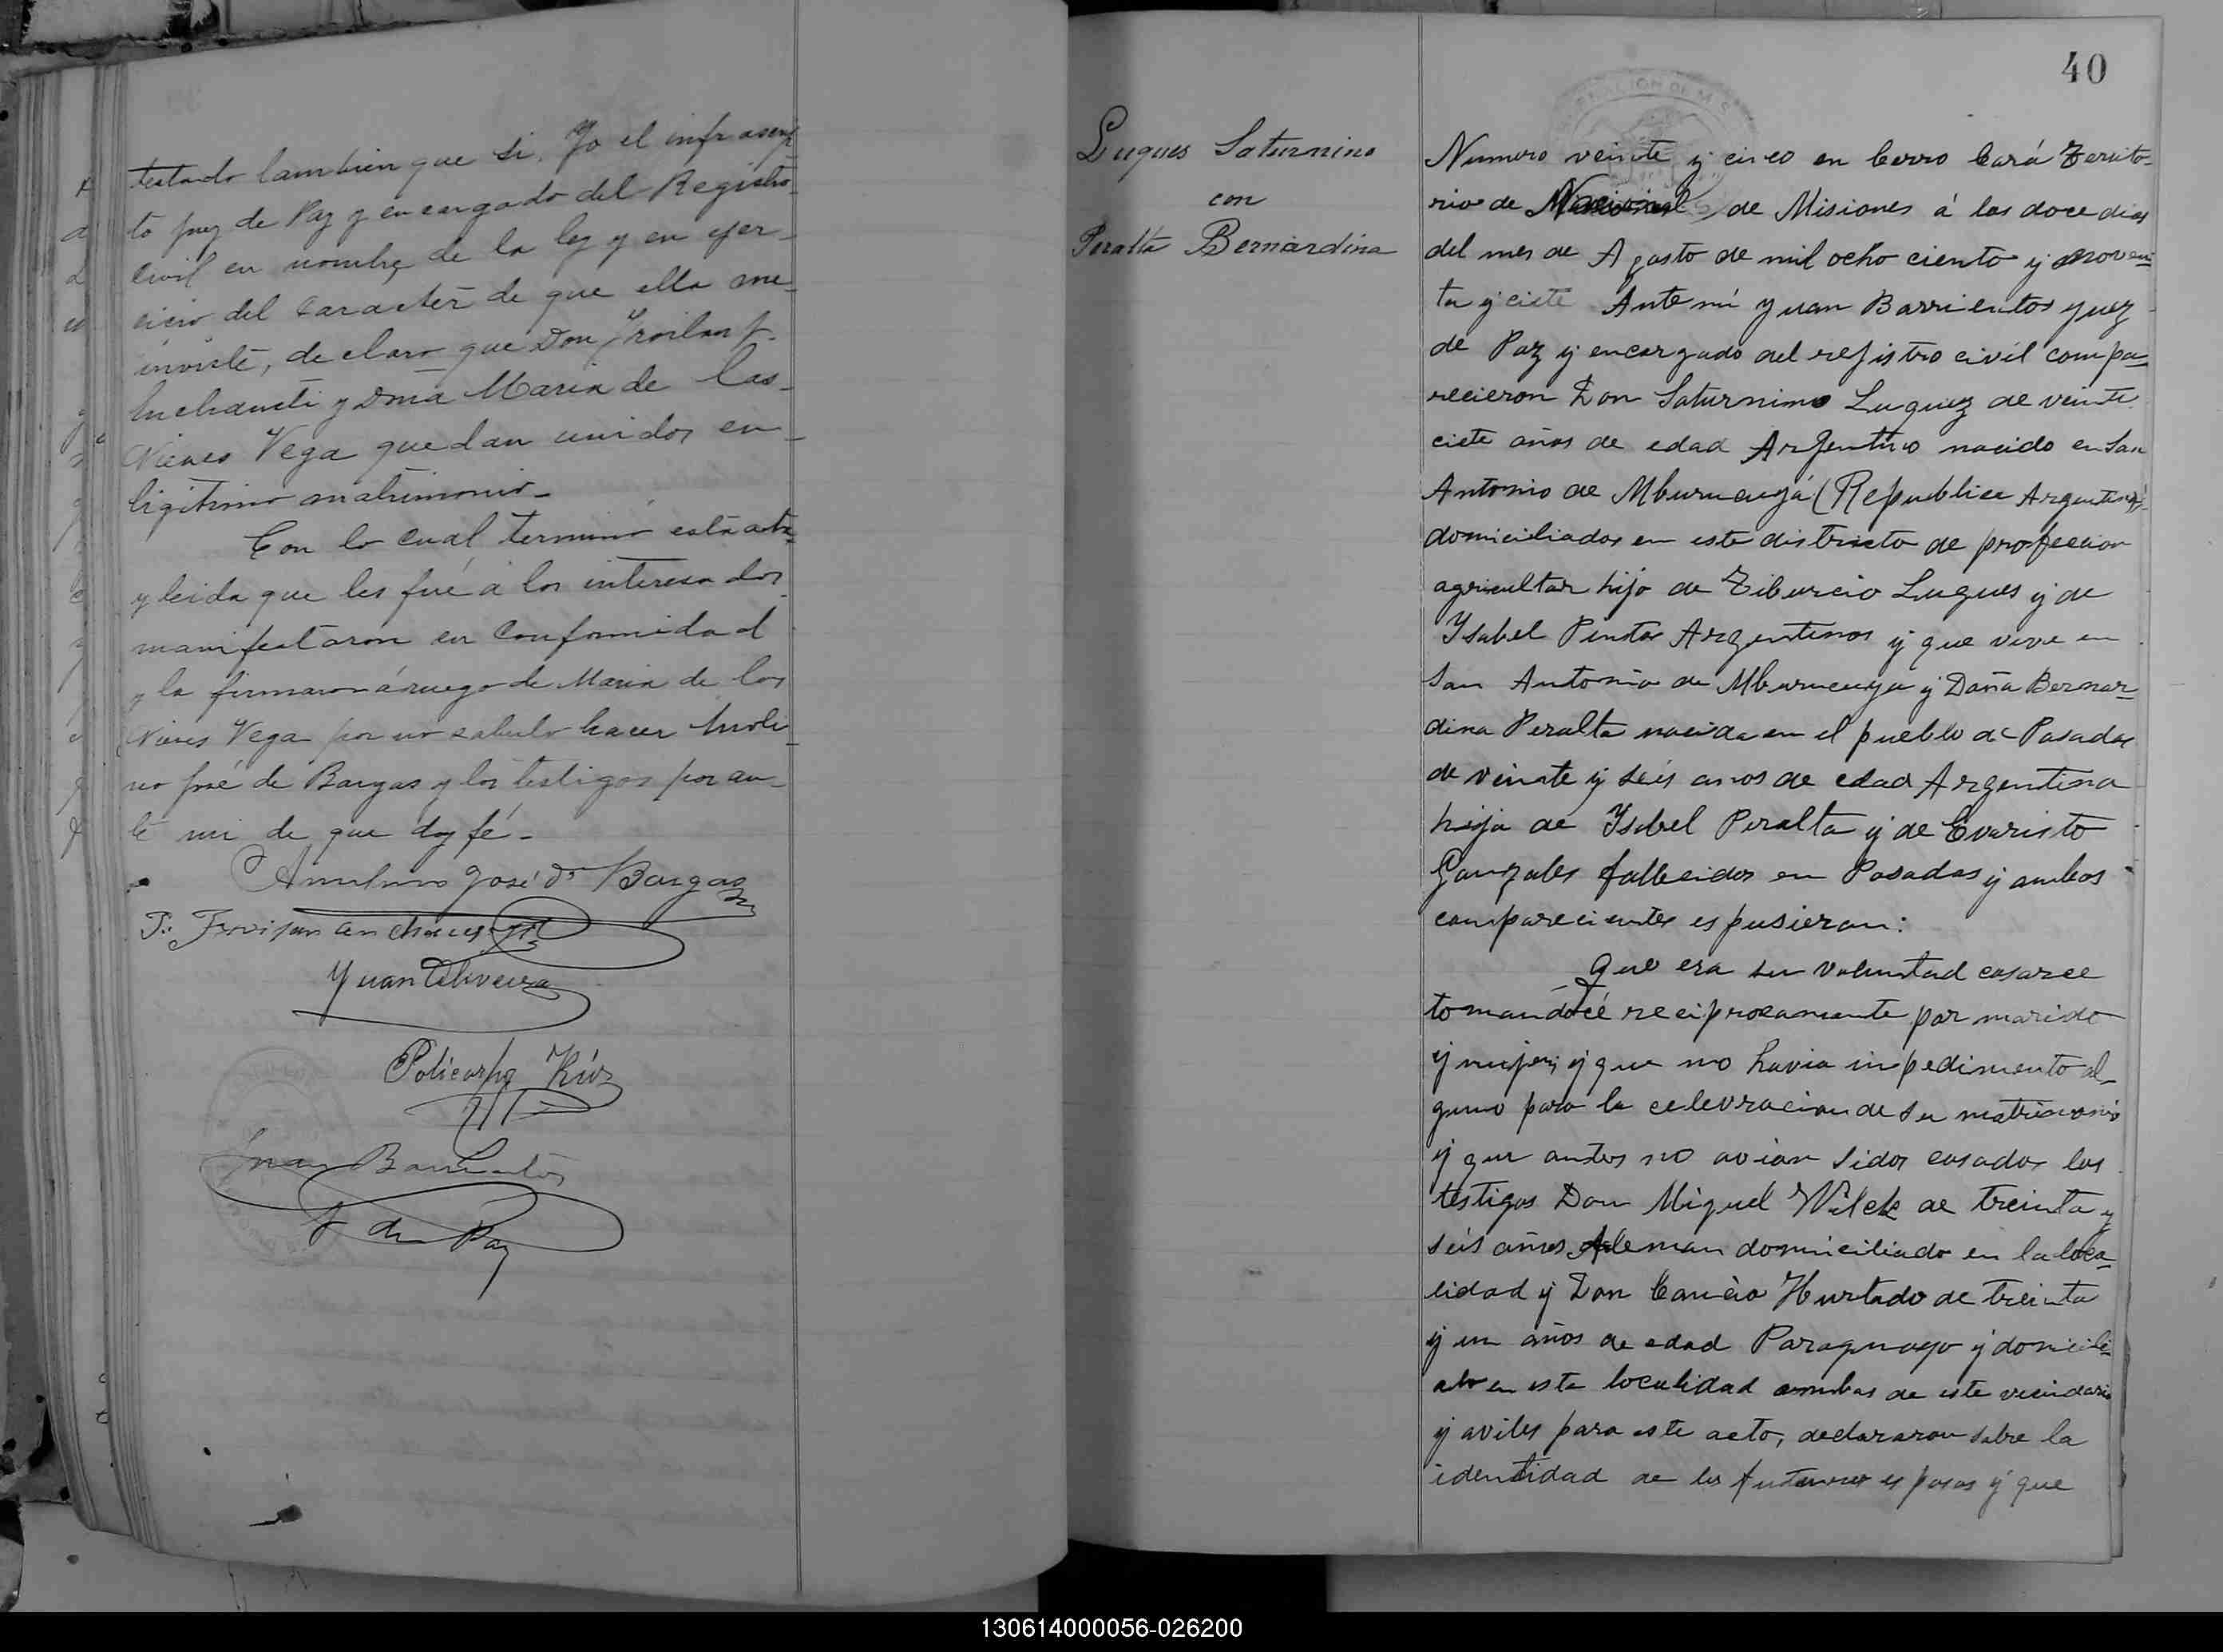 testando tambien que si. Yo el infrascrip-
to juez de Paz y encargado del Registro
Civil en nombre de la ley y en ejer-
cicio del Caracter de que ella me-
inviste, declaro que Don Froilan
Inchausti y Dña Maria de las
Nieves Vega quedan unidos en
ligitimo matrimonio-
Con lo cual terminó esta acta
y leida que les fué á los interesados
manifestaron su Conformidad
y la firmaron á ruego de Maria de las
Nieves Vega por no saberlo hacer
no José de Bargas y los testigos por an-
te mi de que doy fé-
José de Bargas
Juan Oliveira
Policarpo
Juan Barrientos
J de Paz
40
Luques Saturnino
con
Peralta Bernardina
Numero veinte y cinco en Cerro Corá Territo-
rio de Nacional de Misiones á los doce dias
del mes de Agosto de mil ocho ciento y noven-
ta y ciete Ante mi Yuan Barrientos Yuez
de Paz y encargado del registro civil compa-
recieron Don Saturnino Luquez de veinte
ciete años de edad Argentino nacido en San
Antonio de Mburucuyá (Republica Argentina)
domiciliados en este districto de profecion
agricultor hijo de Tiburcio Luques y de
Ysabel Pintos Argentinos y que vive en
San Antonio de Mburucuya y Doña Bernar-
dina Peralta nacida en el pueblo de Posadas
de veinte y seis anos de edad Argentina
hija de Ysabel Peralta y de Evaristo
Gonzales fallecidos en Posadas y ambos
comparecientes espusieron:
Que era su voluntad casarce
tomandocé reciprocamente por marido
y mujer, y que no havia inpedimento al-
guno para la celevracion de su matrimonio
y que antes no avian sidos casados los
testigos Don Miguel Wilck de treinta y
seis años Aleman domiciliado en la loca-
lidad y Don Cancio Hurtado de treinta
y un años de edad Paraguayo y domicili-
ado en esta localidad ambos de este vecindario
y aviles para este acto, declararon sobre la
identidad de los futuros esposos y que
130614000056-026200